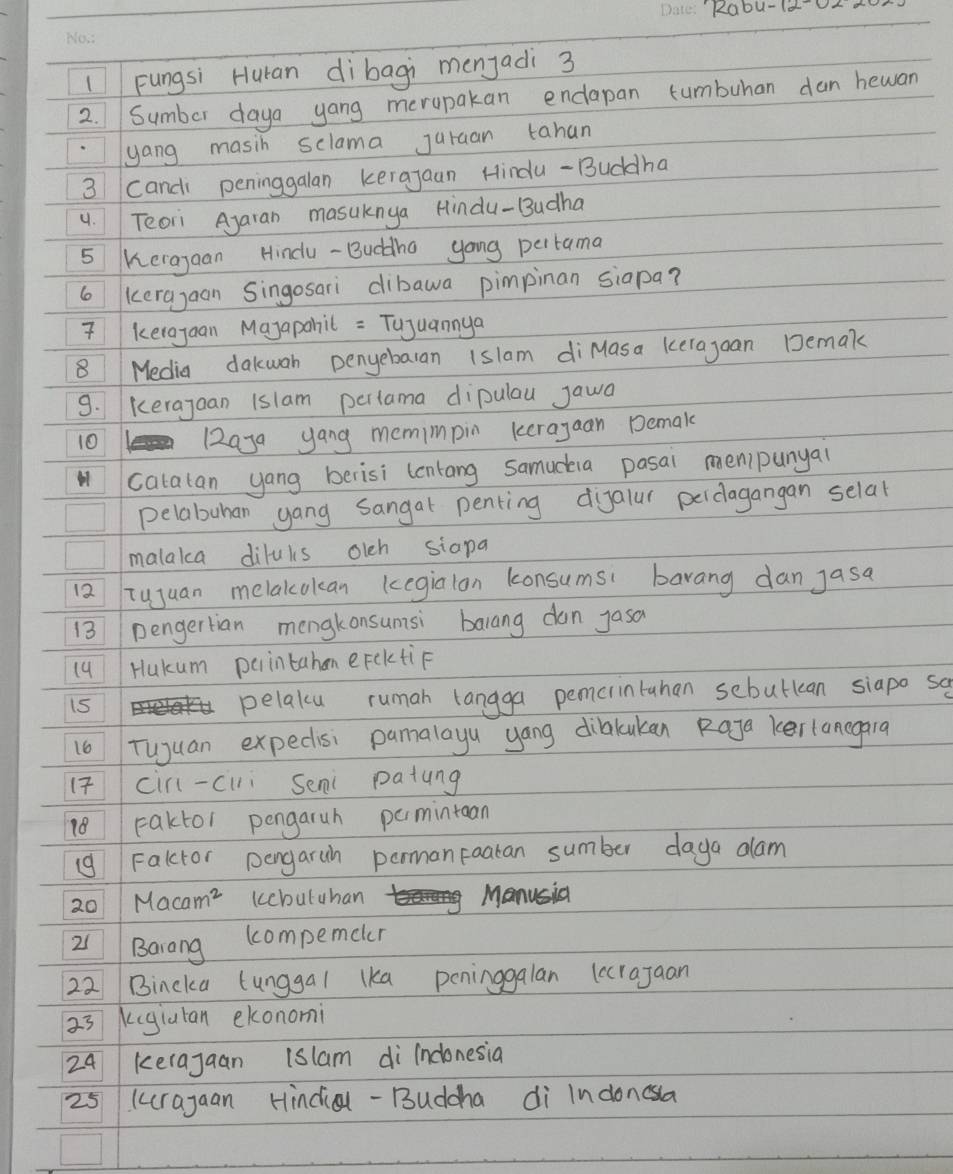 No.: Date: Rabu-12-02-2025
1 Fungsi Hutan dibagi menjadi 3
2. Sumber daya yang merupakan endapan tumbuhan dan hewan
yang masih selama jutaan tahun
3 Candi peninggalan kerajaan Hindu-Buddha
4. Teori Ajaran masuknya Hindu-Budha
5 Kerajaan Hindu-Buddha yang pertama
6 Kerajaan Singosari dibawa pimpinan siapa?
7 Kerajaan Majapahit = Tujuannya
8 Media dakwah penyebaran Islam di Masa kerajaan Demak
9. Kerajaan Islam pertama dipulau jawa
10 Raja yang memimpin kerajaan Demak
11 Catatan yang berisi tentang Samudra pasai mempunyai
pelabuhan yang sangat penting dijalur perdagangan selat
malaka ditulis oleh siapa
12 Tujuan melakukan kegiatan konsumsi barang dan jasa
13 Pengertian mengkonsumsi barang dan jasa
14 Hukum perintahan efektif
15 pelaku rumah tangga pemerintahan sebutkan siapa sa
16 Tujuan expedisi pamalayu yang dilakukan Raja kertanegara
17 Ciri-ciri Seni patung
18 Faktor pengaruh permintaan
19 Faktor pengaruh permanfaatan sumber daya alam
20 Macam² kebutuhan Manusia
21 Barang kompemeler
22 Bineka tunggal ika peninggalan kerajaan
23 Kegiatan ekonomi
24 Kerajaan Islam di Indonesia
25 Kerajaan Hindia-Buddha di Indonesia